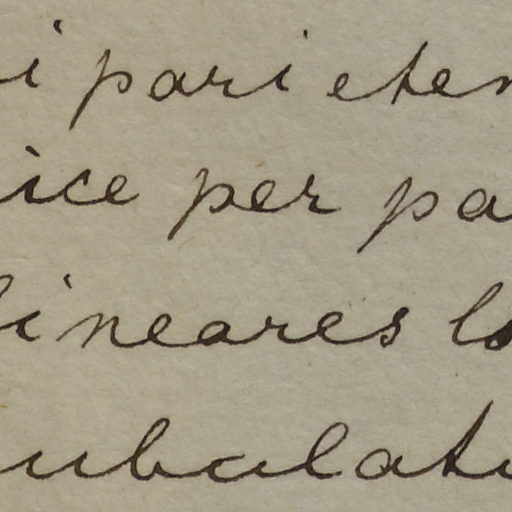 i parieten
ice per pa
lineares lo
ubulat